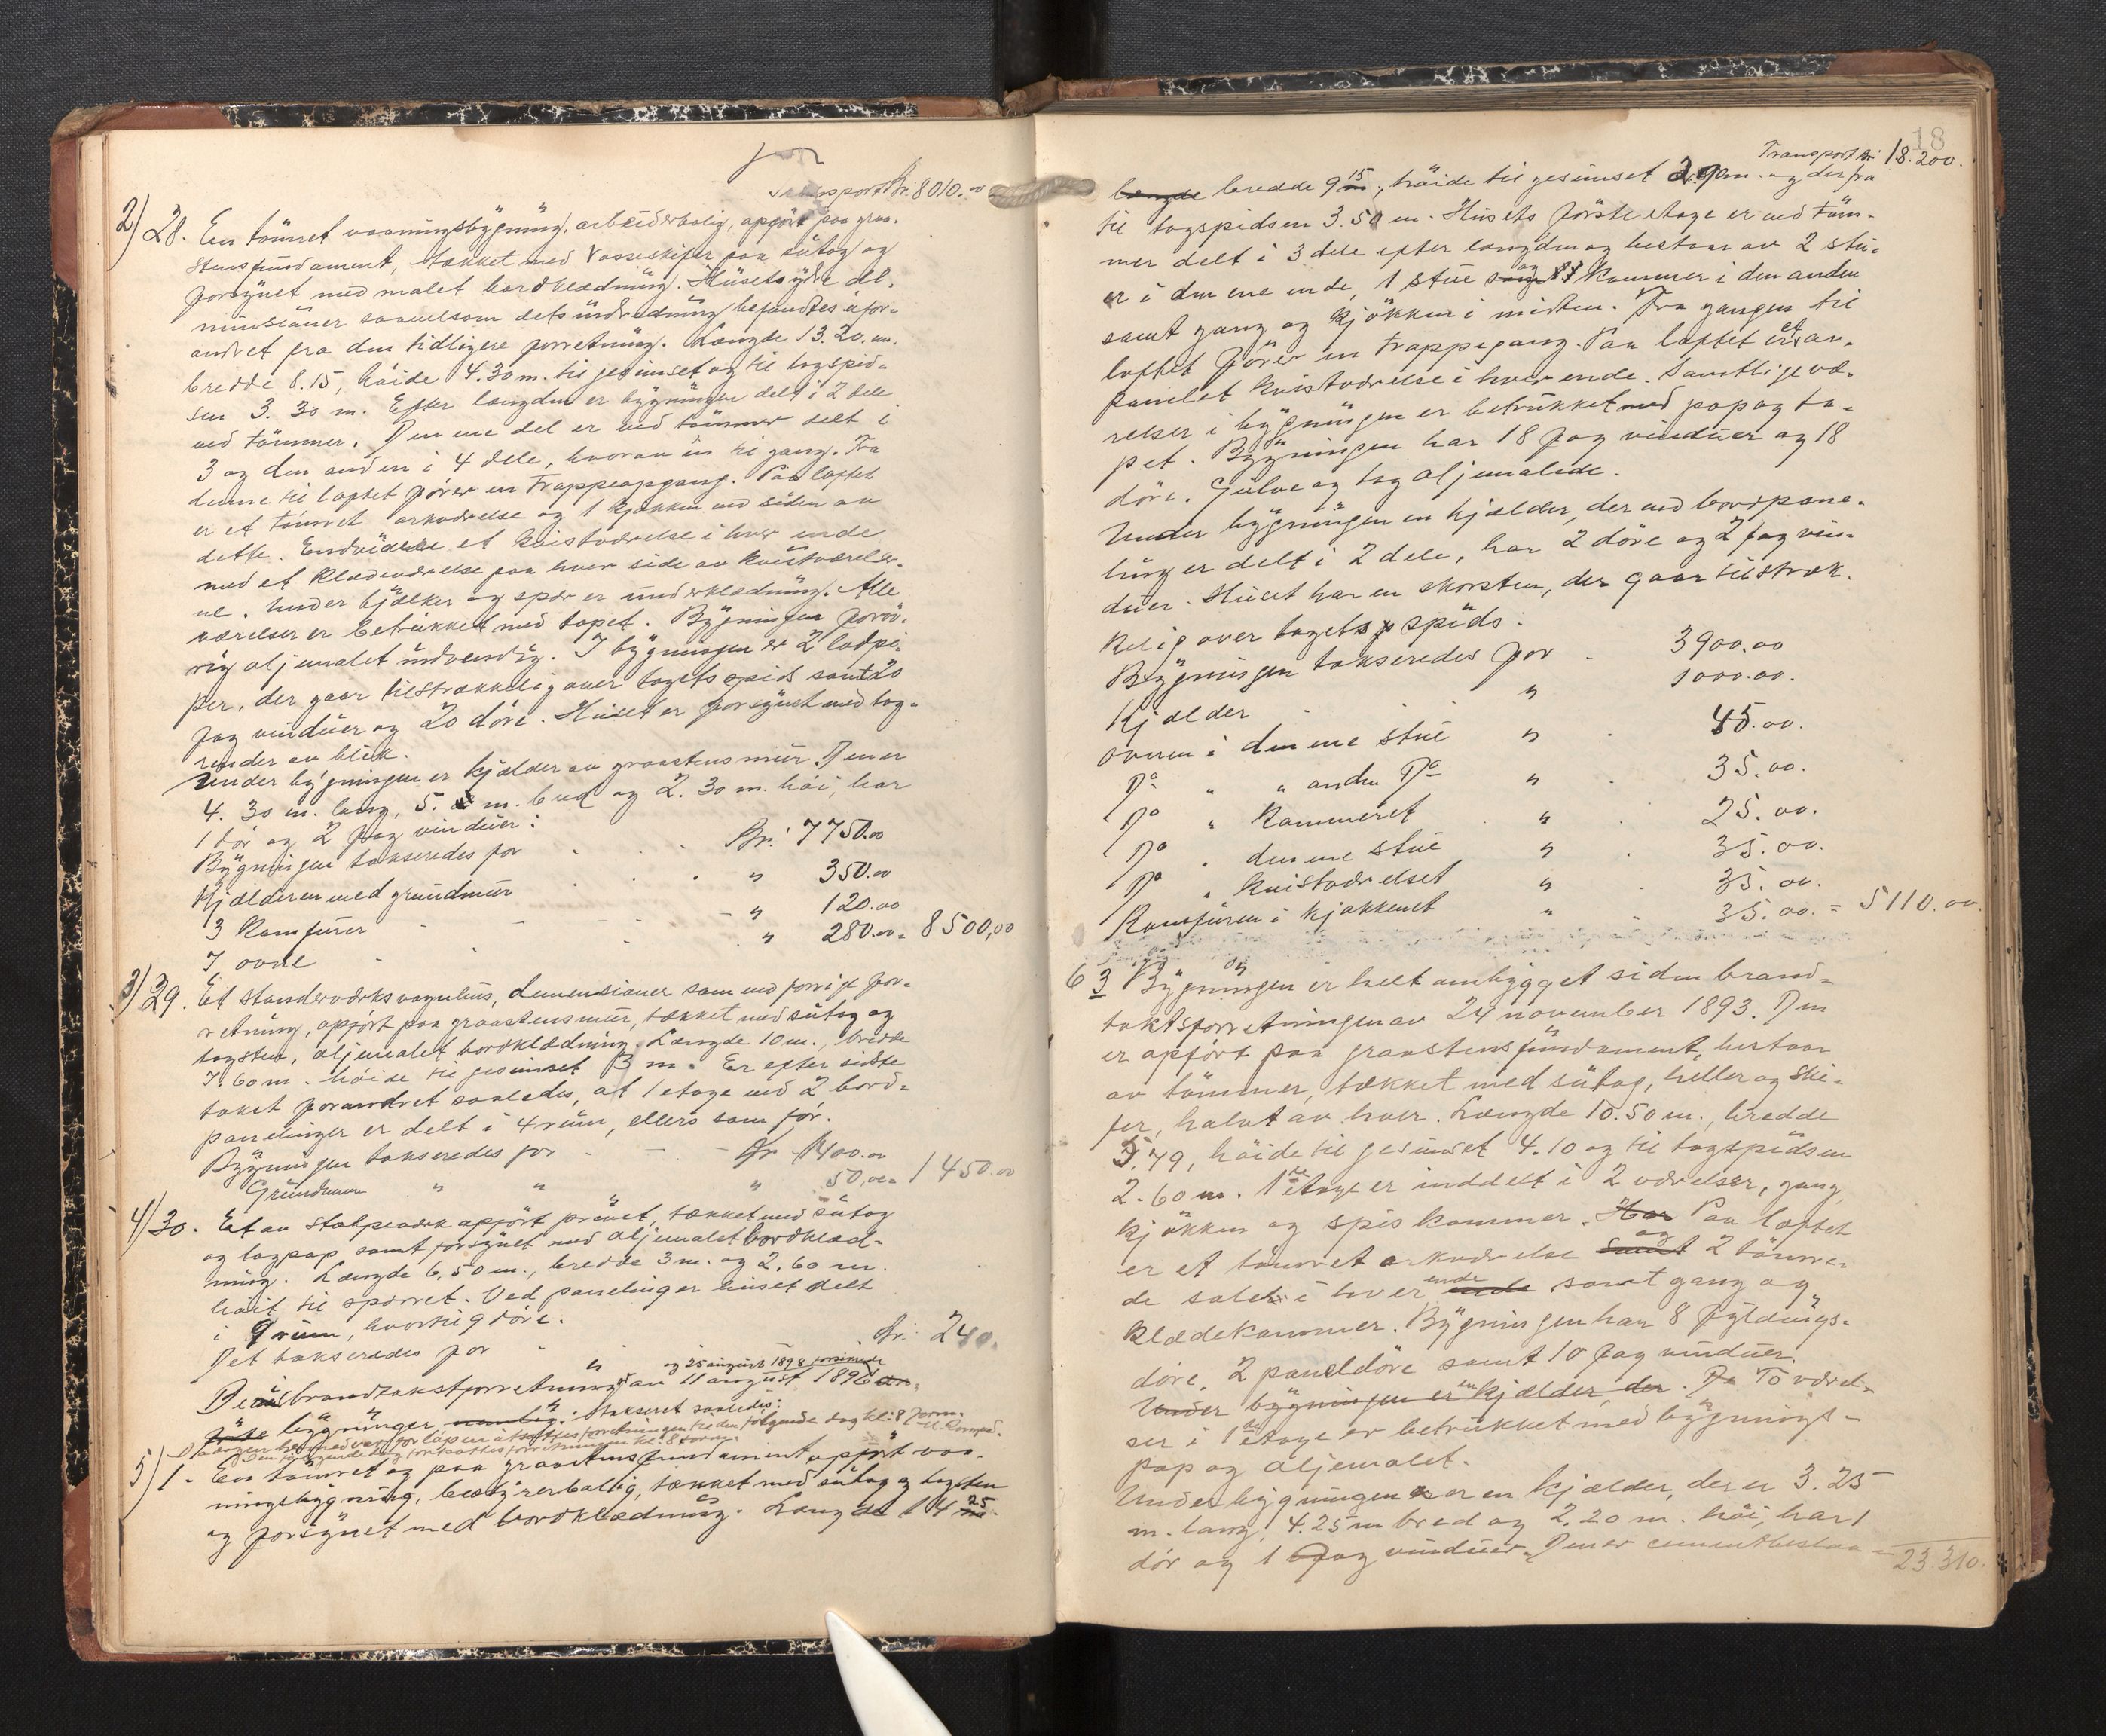 Transport Kr. 8010.00
2) 28. En tömret vaaningsbygning, arbeiderbolig, opført paa graa-
stensfundament, tækket med Vosseskifer paa sutag og
forsynet med malet bordklædning. Husets ydre di-
mensioner saavelsom dets indredning befandtes ufor-
andret fra den tidligere forretning. Længde 13.20. m.
bredde 8.15, höide 4.30 m. til gesimset og til tagspid-
sen 3.30 m. Efter længden er bygningen delt i 2 dele
ved tömmer. Den ene del er ved tömmer delt i
3 og den anden i 4 dele, hvorav en til gang. Fra
denne til loftet förer en trappeopgang. Paa loftet
er et tömret arkværelse og 1 kjøkken ved siden av
dette. Endvidere et kvistværelse i hver ende
med et klædeværelse paa hver side av kvistværelser-
ne. Under bjælker og spær er underklædning. Alle
værelser er betrukket med tapet. Bygningen forøv-
rig oljemalet indvendig. I bygningen er 2 ladpi-
per, der gaar tilstrækkelig over tagets spids samt
fag vinduer og 20 döre. Huset er forsynet med tag-
render av blik.
Under bygningen er kjælder av graastensmur. Den er
4.30 m. lang, 5. m. bred og 2.30 m. höi, har
1 dör og 2 fag vinduer:
Bygningen takseredes for Kr. 7750.00
Kjælderen med grundmur " 350.00
3 Komfurer " 120.00
7 ovne " 280.00 = 8500,00
3) 29. Et standerværks vognhus, dimensioner som ved forrige for-
retning, opført paa graastensmur, tækket med sutag og
tagsten, oljemalet bordklædning. Længde 10 m., bredde
7.60 m. höide til gesimset 3 m. Er efter sidste
takst forandret saaledes, at 1 etage ved 2 bord-
panelinger er delt i 4 rum, ellers som för.
Bygningen takseredes for Kr. 1400.00
Grundmuren " " " 50,00 = 1450.00
4) 30. Et av stolpeværk opført privet, tækket med sutag
og tagpap, samt forsynet med oljemalet bordklæd-
ning. Længde 6,50 m., bredde 3 m. og 2.60 m.
höit til sparret. Ved panelinger huset delt
i 9 rum, hvortil 9 döre.
Det takseredes for Kr. 240.
og 25 august 1898 forsikrede
De ved brandtakstforretning av 11 august 1896
bygninger takseret saaledes:
5) 1. En tömret og paa graastensfundament opført vaa-
ningsbygning, bestyrerbolig, tækket med sutag og tagsten
og forsynet med bordklædning. Længde 14 25 m.
18
Transport Kr. 18.200.
længde bredde 9 15 m, höide til gesimset og derfra
til tagspidsen 3.50 m. Husets förste etage er ved töm-
mer delt i 3 dele efter længden og bestaar av 2 stu-
er i den ene ende, 1 stue og 1 kammer i den anden
samt gang og kjökken i midten. Fra gangen til
loftet förer en trappegang. Paa loftet et
panelet kvistværelse i hver ende. Samtlige væ-
relser i bygningen er betrukket med pap og ta-
pet. Bygningen har 18 fag vinduer og 18
döre. Gulve og tag oljemalede.
Under bygningen en kjælder, der ved bordpane-
ling er delt i 2 dele, har 2 döre og 2 fag vin-
duer. Huset har en skorsten, der gaar tilstræk-
kelig over tagets spids.
Bygningen takseredes for 3900.00
Kjælder " 1000.00.
Ovnen i den ene stue " 45.00.
Do " " andre Do " 35.00.
Do " Kammeret " 25.00.
Do " den ene stue " 35.00.
Do " kvistværelset " 35.00.
Komfuren i kjøkkenet " 35.00. = 5110.00
6 3 Bygningen er helt ombygget siden brand-
takstforretningen av 24 november 1893. Den
er opført paa graastensfundament, bestaar
av tömmer, tækket med sutag, heller og ski-
fer, halvt av hver. Længde 10.50 m., bredde
5.79, höide til gesimset 4.10 og til tagspidsen
2.60 m. 1ste etage er inddelt i 2 værelser, gang,
kjökken og spiskammer. Har Paa loftet
er et tömret arkværelse samt og 2 tömre-
de saler i hver ende samt gang og
klædekammer. Bygningen har 8 fyldings-
döre, 2 paneldöre samt 10 fag vinduer.
Under bygningen er en kjælder, der. To værel-
ser i 1ste etage er betrukket med bygnings-
pap og oljemalet.
Under bygningen er en kjælder, der er 3.25
m. lang, 4.25 m bred og 2.20 m. höi, har 1
dör og 1 fag vinduer. Den er cementbestaa-
23.310.